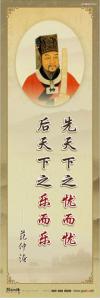 先天下之忧而忧
后天下之乐而乐
范仲淹